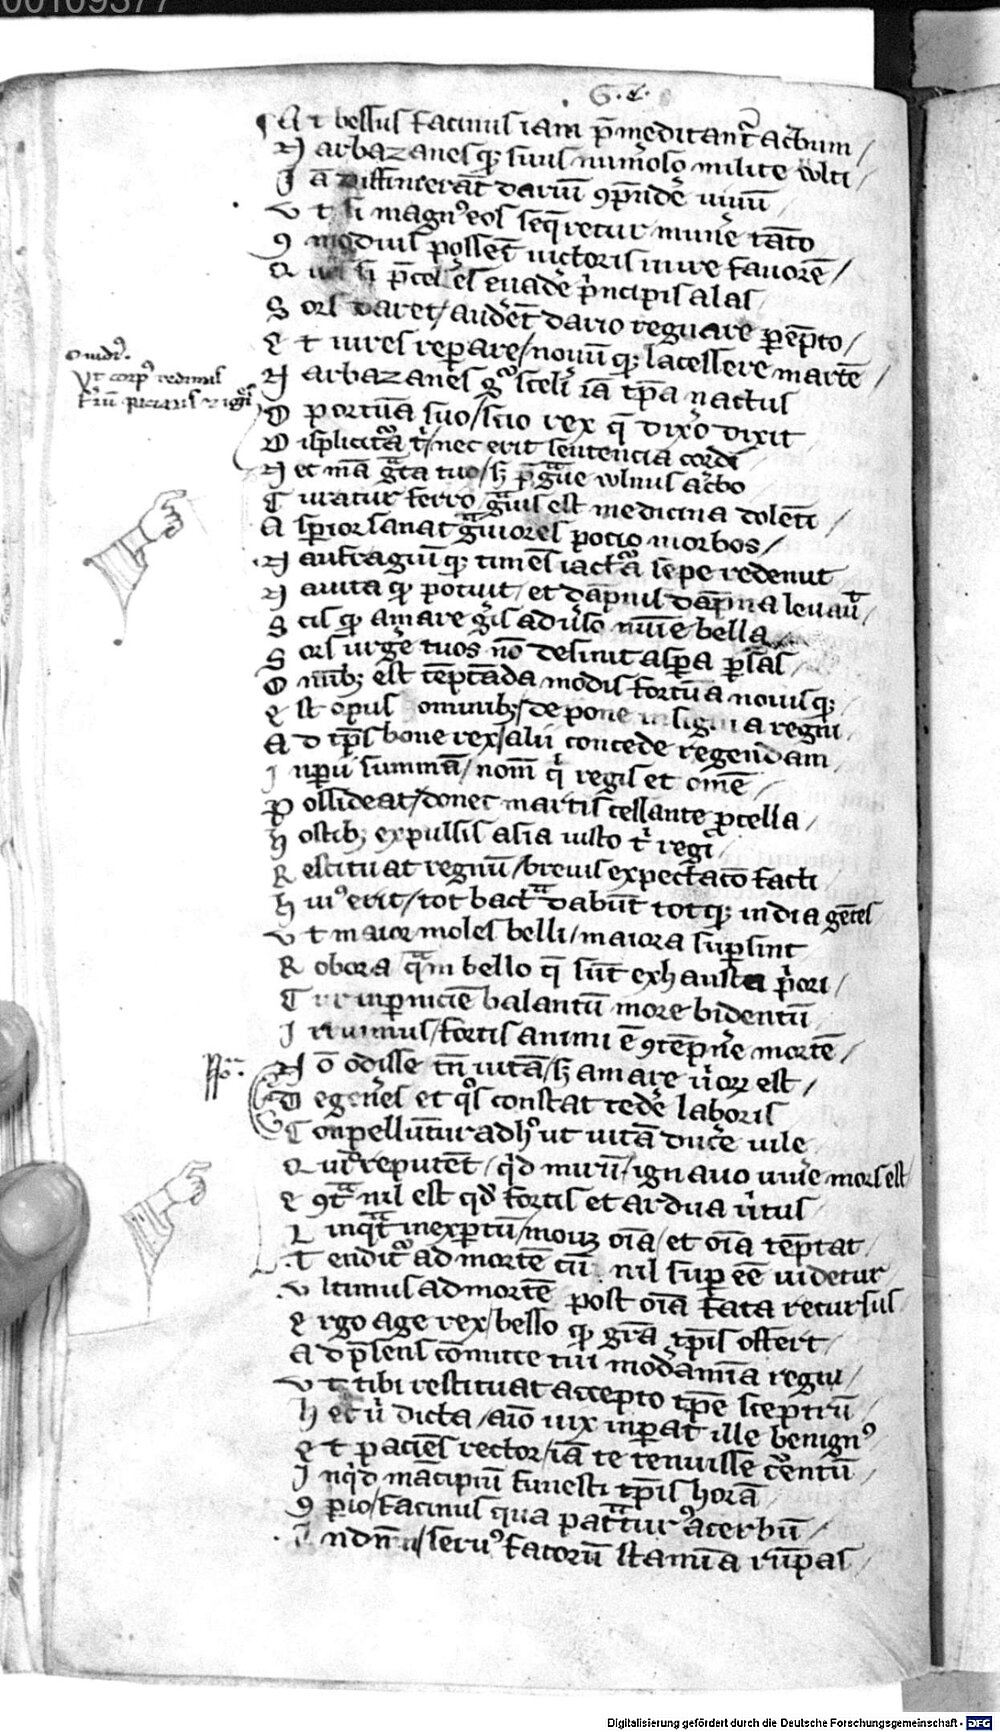 00109377
G. C.
At bessus facinus iam p̄meditant᷑ acerbum /
Narbazanesq; suus numoso milite volti /
Jā diffinierāt dariū ꝯp̄ndē uiuū /
Vt si magn᷒ eos seq̄retur munē tāto
ꝯ modius possēt uictoris iure fauorē /
euadē p̄ncipis alas /
Sors daret / audēt dario regnare pēpto /
Et uires repare / nouū q; lacessere martē /
Narbazanes gͦ sceli iā tp̄a nactus
Oportūa suo / scio rex q̄ dixo dixit
ouidi᷒.
Vt corp᷒ redimas
Displicitᵃ t' / nec erit sentencia cordi
Nec mā gᵃta tuo / sꝫ p̄gᵃue vlnus acbo
Curatur ferro gᵃuis est medicina dolēti /
Asperior sanat gᵃuiores potio morbos /
Naufragiūq; timēs iactᵃa sepe redemit
Nauita qͥ potuit / et dāpnis dāpna leuaū /
Scis qͥ amare gis aduso nūine bella
Sors urgē tuos nō desinit aspa psas /
Omīb; est tēptāda modis fortūa nouisq;
Est opus ominib; / depone insignia regni /
Ad tp̄s bone rex / alii concede regendam
Inpii summā / nom̄ qͥ regis et omē /
Possideat / donec martis cessante pcella /
Hostib; expulsis asia iusto t' regi
Restituat regnū / breuis expectaco facti
Hui᷒ erit / tot bactᵃ dabūt totq; india gētes
Vt maior moles belli / maiora supsint
Robora qᵃm bello q̄ sūt exhausta pͥori /
Cur in pniciē balantū more bidentū
Irruimus / fortis animi ē ꝯtēpnē mortē /
Nō odisse tn̄ uitā / sꝫ amare uiorꝫ est /
Degenēs et qͦs constat tedē laboris
Conpelluntur ad hͦ ut uitā ducē uile
Qur reputēt / qͥd mirū / ignauo uiuē mors est
E ꝯtᵃ nil est qd fortis et ardua u'tus
Linqᵃt inexptū / mouꝫ oīa / et oīa tēptat /
Tenditᵒ ad mortē cū nil sup eē uidetur
Vltimus ad mortē post oīa fata recursus
Ergo age rex / bello qͥ grā tp̄is offert /
Ad p̄sens cōmitte tui modāmīa regni /
Vt tibi restituat accepto tp̄e sceptrū
Hec u' dicta / aīo uix inpat ille benign᷒
Et paciēs rector / iā te tenuisse c'entū
Inqͥd mācipiū funesti tp̄is horā
ꝯpio / facinus qua patᵃtur acerbū /
In dn̄m / seru᷒ fatorū stamīa rūpas /
Digitalisierung gefördert durch die Deutsche Forschungsgemeinschaft - DFG